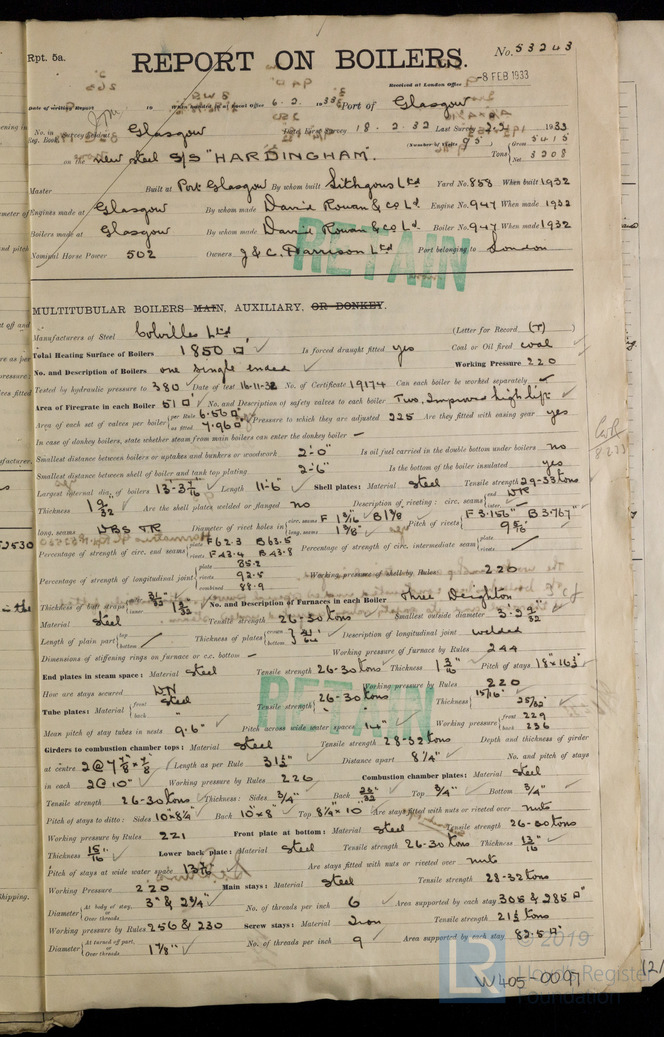 Rpt. 5a.
REPORT ON BOILERS.
No. 53243
Received at London Office
-8 FEB 1933
Date of writing Report 19 When handed in at Local Office 6. 2. 1933 Port of Glasgow
No. in Reg. Book. Survey held at Glasgow Date, First Survey 18. 2. 32 Last Survey 1933
(Number of Visits 95) Gross 5415
on the new steel S/S "HARDINGHAM". Tons Net 3208
Master Built at Port Glasgow By whom built Lithgows Ltd Yard No. 858 When built 1932
Engines made at Glasgow By whom made David Rowan & Co Ld Engine No. 947 When made 1932
Boilers made at Glasgow By whom made David Rowan & Co Ld Boiler No. 947 When made 1932
Nominal Horse Power 502 Owners J & C. Harrison Ltd Port belonging to London
RETAIN
MULTITUBULAR BOILERS MAIN, AUXILIARY, OR DONKEY.
Manufacturers of Steel Colvilles Ltd (Letter for Record (T) )
Total Heating Surface of Boilers 1850 □' Is forced draught fitted yes Coal or Oil fired coal
No. and Description of Boilers one single ended Working Pressure 220
Tested by hydraulic pressure to 380 Date of test 16-11-32 No. of Certificate 19174 Can each boiler be worked separately ✓
Area of Firegrate in each Boiler 51 □' No. and Description of safety valves to each boiler Two, Improved high lift
Area of each set of valves per boiler per Rule 6.560 □" as fitted 7.960 □" Pressure to which they are adjusted 225 Are they fitted with easing gear yes
In case of donkey boilers, state whether steam from main boilers can enter the donkey boiler –
Smallest distance between boilers or uptakes and bunkers or woodwork 2'-0" Is oil fuel carried in the double bottom under boilers no
Smallest distance between shell of boiler and tank top plating 2'-6" Is the bottom of the boiler insulated yes
Largest internal dia. of boilers 13'-3 7/16 Length 11'-6" Shell plates: Material Steel Tensile strength 29-33 tons
Thickness 1 9/32 Are the shell plates welded or flanged no Description of riveting: circ. seams end DR
long. seams DBS TR Diameter of rivet holes in circ. seams F 1 3/16 B 1 1/8 long. seams 1 3/8" Pitch of rivets F 3.156" B 3.767" 9 5/16"
Percentage of strength of circ. end seams plate F 62.3 B 63.5 rivets F 43.4 B 43.8 Percentage of strength of circ. intermediate seam plate rivets
Percentage of strength of longitudinal joint plate 85.2 rivets 92.5 combined 88.9 Working pressure of shell by Rules 220
Thickness of butt straps outer 31/32 inner 1 3/32 No. and Description of Furnaces in each Boiler Three Deighton
Material Steel Tensile strength 26-30 tons Smallest outside diameter 3'-2 9/32
Length of plain part top bottom Thickness of plates crown bottom Description of longitudinal joint welded
Dimensions of stiffening rings on furnace or c.c. bottom – Working pressure of furnace by Rules 244
End plates in steam space: Material Steel Tensile strength 26-30 tons Thickness 1 3/16 Pitch of stays 18" x 16 1/2"
How are stays secured DN Working pressure by Rules 220
Tube plates: Material front Steel back " Tensile strength 26-30 tons " Thickness 15/16" 25/32"
Mean pitch of stay tubes in nests 9.6" Pitch across wide water spaces 14" Working pressure front 229 back 236
RETAIN
Girders to combustion chamber tops: Material Steel Tensile strength 28-32 tons Depth and thickness of girder
at centre 2 @ 7 7/8 x 7/8 Length as per Rule 31 1/2" Distance apart 8 1/4" No. and pitch of stays
in each 2 @ 10" Working pressure by Rules 226 Combustion chamber plates: Material Steel
Tensile strength 26-30 tons Thickness: Sides 3/4" Back 23/32 Top 3/4" Bottom 3/4"
Pitch of stays to ditto: Sides 10" x 8 1/4" Back 10" x 8" Top 8 1/4 x 10" Are stays fitted with nuts or riveted over nuts
Working pressure by Rules 221 Front plate at bottom: Material Steel Tensile strength 26-30 tons
Thickness 15/16" Lower back plate: Material Steel Tensile strength 26-30 tons Thickness 13/16"
Pitch of stays at wide water space 13 7/8 Are stays fitted with nuts or riveted over nuts
Working Pressure 220 Main stays: Material Steel Tensile strength 28-32 tons
Diameter At body of stay, or Over threads 3" & 2 3/4" No. of threads per inch 6 Area supported by each stay 305 & 285 □"
Working pressure by Rules 256 & 230 Screw stays: Material Iron Tensile strength 21 1/2 tons
Diameter At turned off part, or Over threads 1 7/8" No. of threads per inch 9 Area supported by each stay 82.5 □"
© 2019
LR Lloyd's Register Foundation
W405-0097